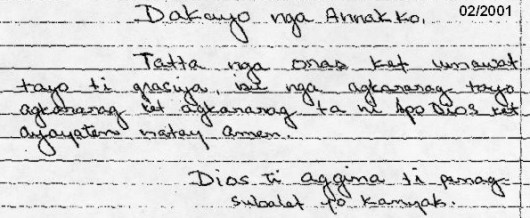 Dakayo nga Annakko. 02/2001
Tatta nga oras ket umawat
tayo ti grasiya, isu nga agkararag tayo
agkararag ket agkararag ta ni Apo Dios ket
ayayaten natay amen.
Dios ti aggina ti panag-
subalet yo kanyak.